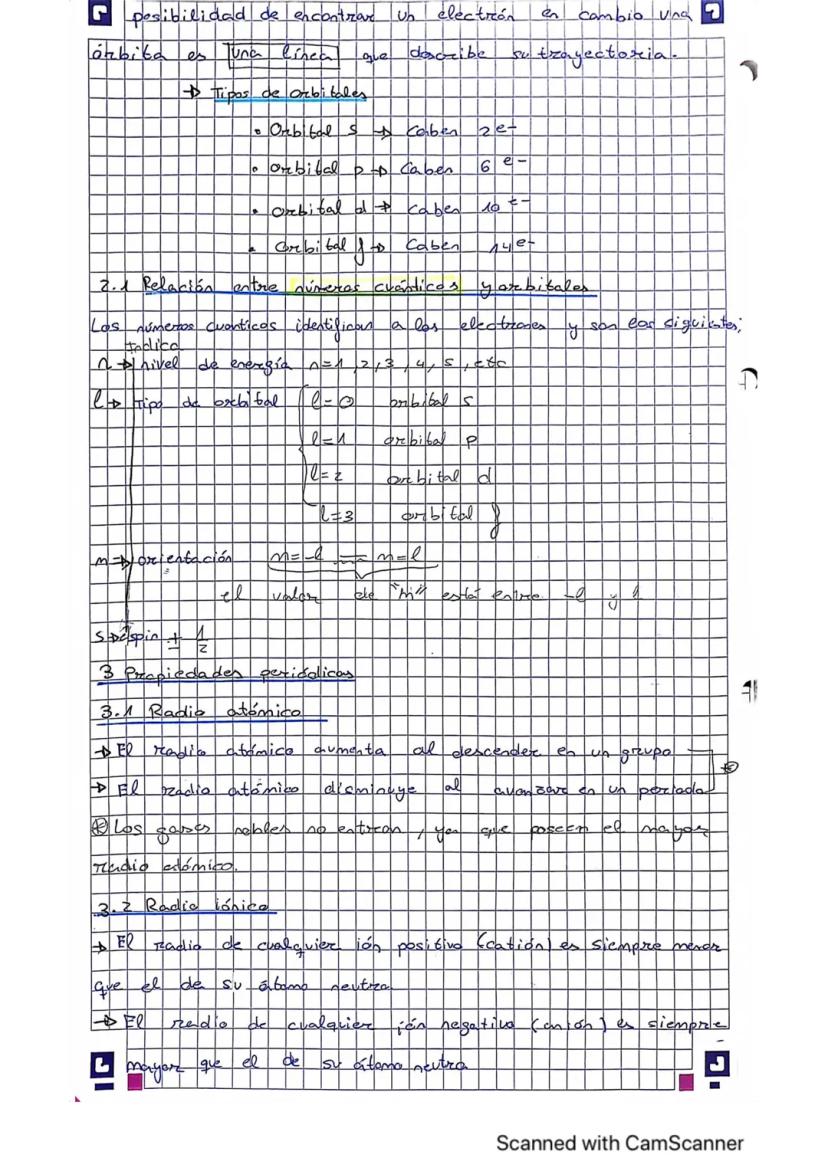 posibilidad de encontrar un electrón en cambio una
órbita es una línea que describe su trayectoria.
→ Tipos de orbitales
• Orbital s → Caben 2e-
• orbital p → Caben 6 e-
• orbital d → caben 10 e-
• Orbital f → Caben 14e-
2.1 Relación entre números cuánticos y orbitales
Los números cuanticos identifican a los electrones y son los siguientes;
Indica
n → nivel de energía n=1, 2, 3, 4, 5, etc
l → Tipo de orbital { l=0 orbital s
l=1 orbital p
l=2 orbital d
l=3 orbital f
m → orientación m=-l --- m=l
el valor de "m" está entre -l y l
s → espin ± 1/2
3 Propiedades periódicas
3.1 Radio atómico
→ El radio atómico aumenta al descender en un grupo
→ El radio atómico disminuye al avanzar en un periodo *
* Los gases nobles no entran, ya que poseen el mayor
radio atómico.
3.2 Radio iónico
→ El radio de cualquier ión positivo (catión) es siempre menor
que el de su átomo neutro
→ El radio de cualquier ión negativo (anión) es siempre
mayor que el de su átomo neutro
Scanned with CamScanner